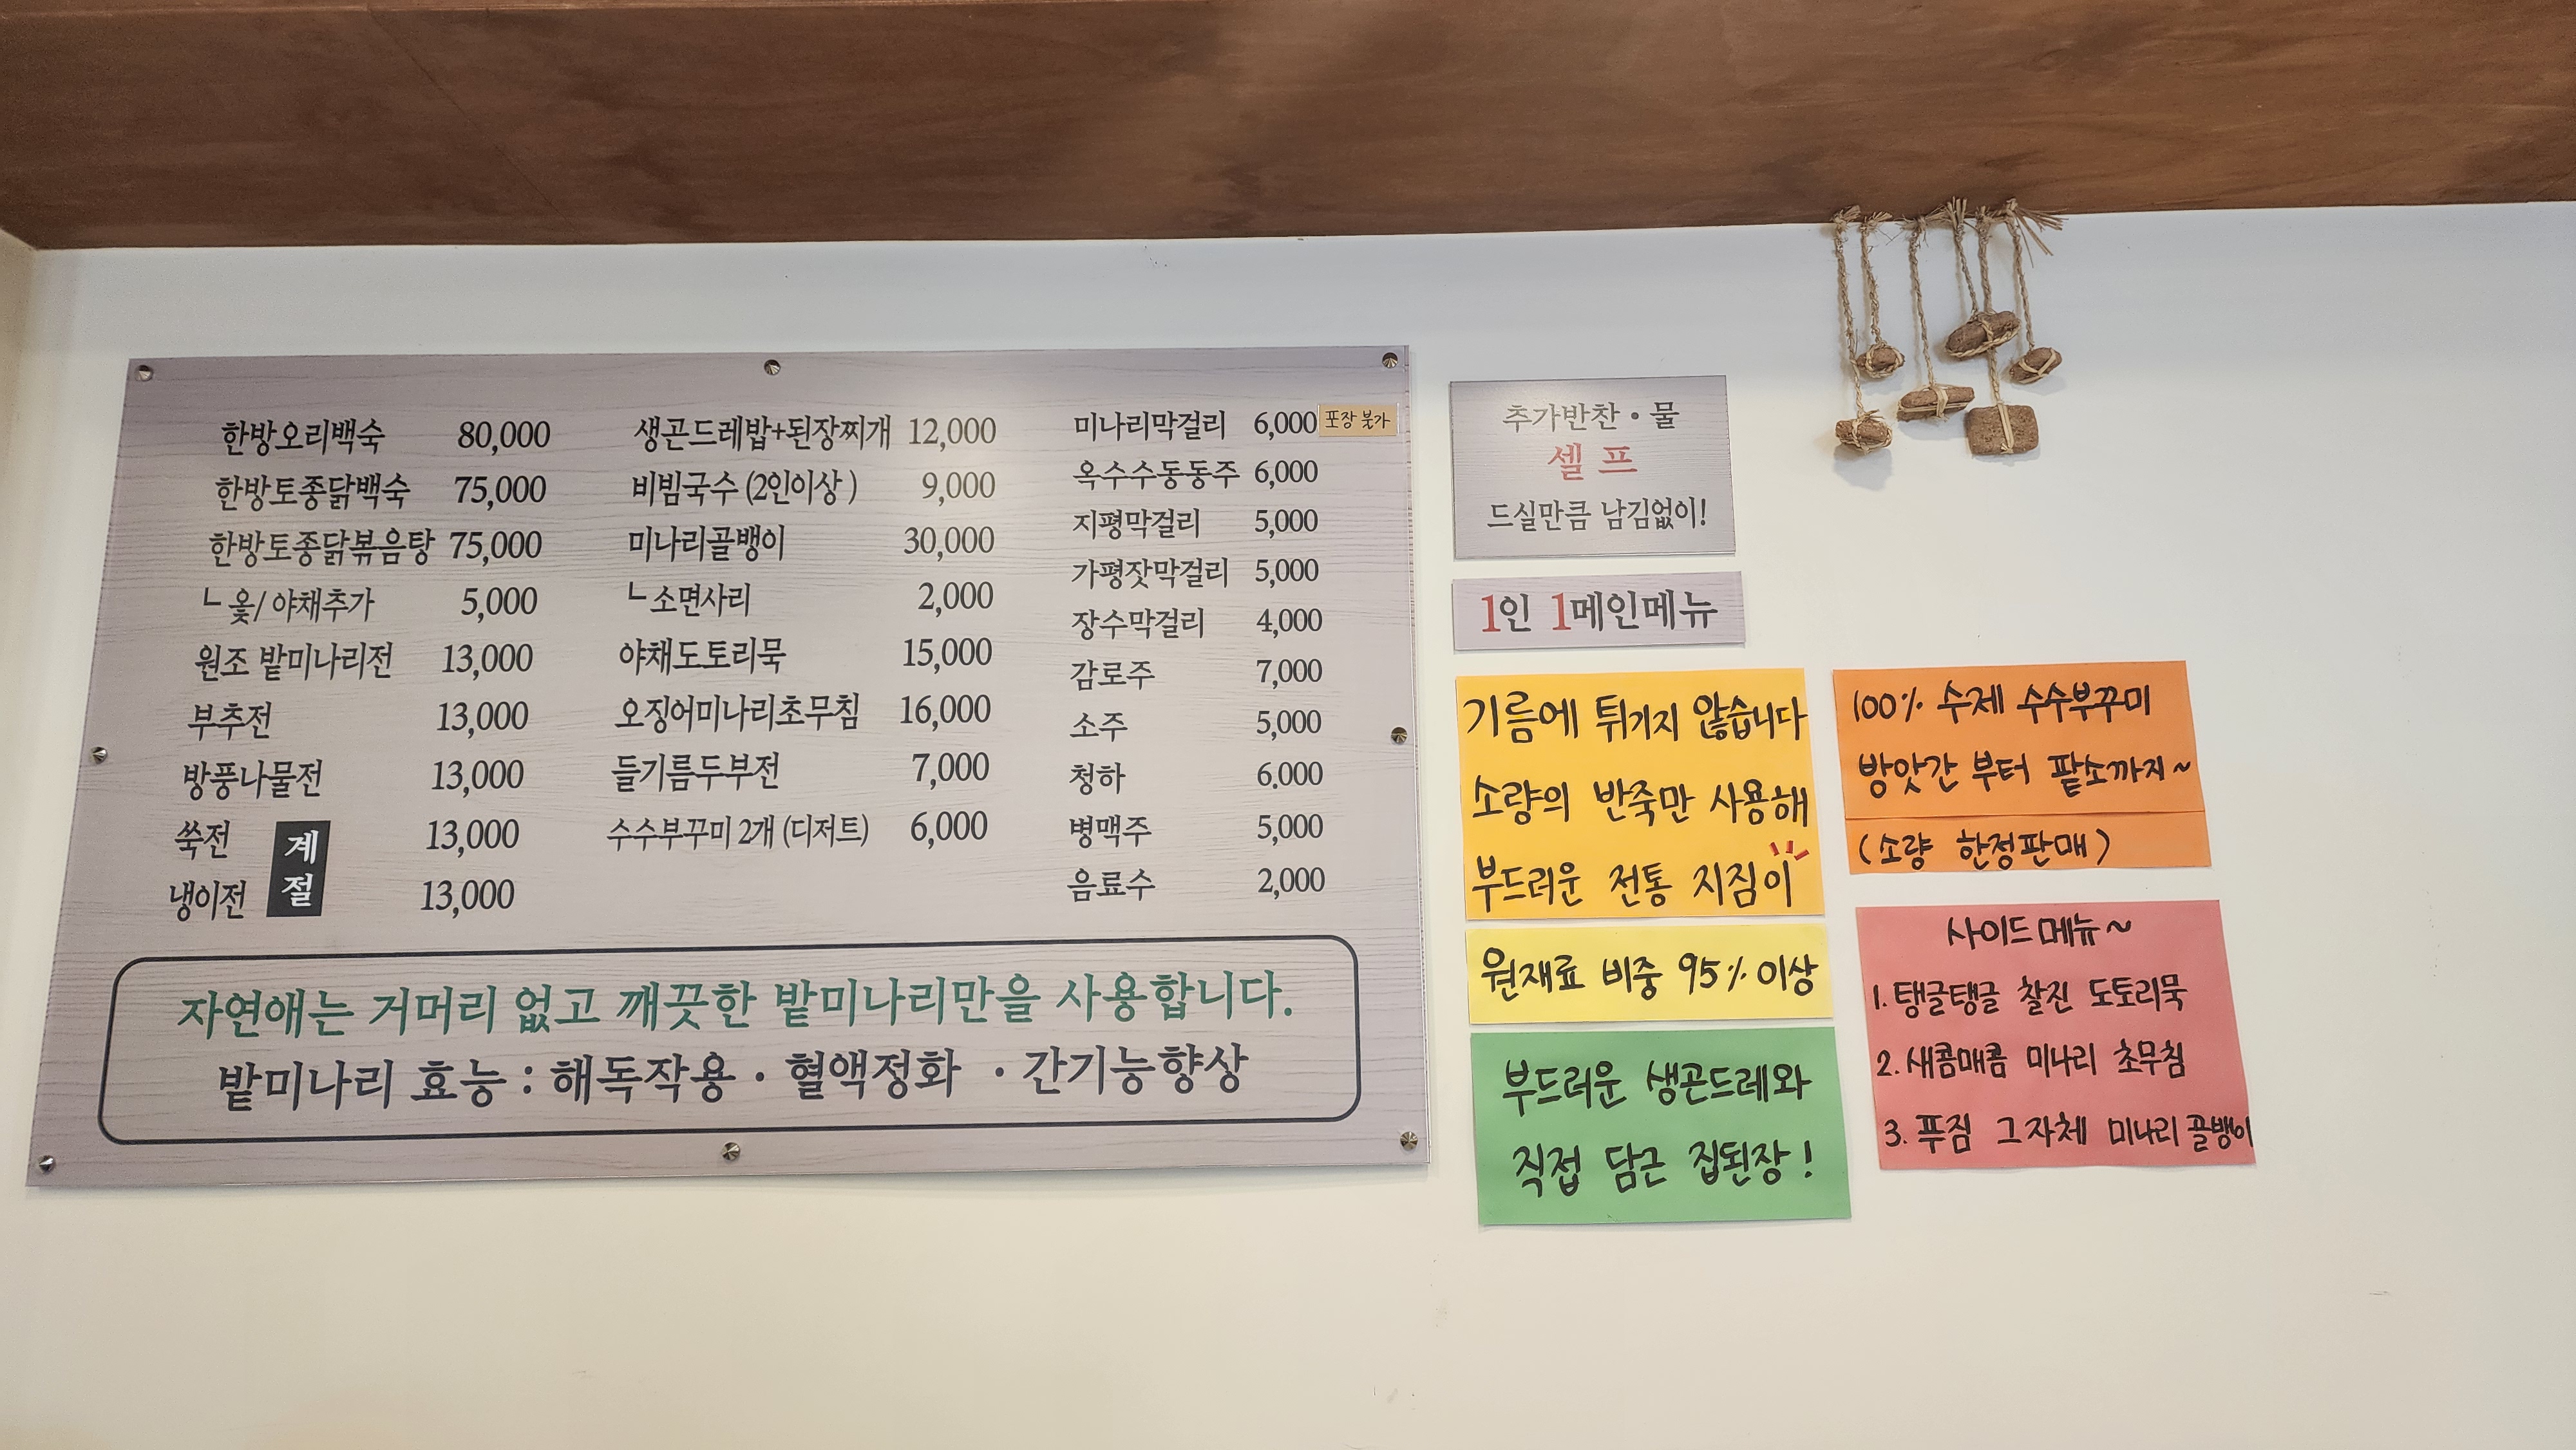 한방오리백숙 80,000
한방토종닭백숙 75,000
한방토종닭볶음탕 75,000
ㄴ옻/야채추가 5,000
원조 밭미나리전 13,000
부추전 13,000
방풍나물전 13,000
쑥전 13,000
냉이전 13,000
계절
생곤드레밥+된장찌개 12,000
비빔국수 (2인이상) 9,000
미나리골뱅이 30,000
ㄴ소면사리 2,000
야채도토리묵 15,000
오징어미나리초무침 16,000
들기름두부전 7,000
수수부꾸미 2개 (디저트) 6,000
미나리막걸리 6,000 포장 불가
옥수수동동주 6,000
지평막걸리 5,000
가평잣막걸리 5,000
장수막걸리 4,000
감로주 7,000
소주 5,000
청하 6,000
병맥주 5,000
음료수 2,000
자연애는 거머리 없고 깨끗한 밭미나리만을 사용합니다.
밭미나리 효능 : 해독작용 · 혈액정화 · 간기능향상
추가반찬 · 물
셀 프
드실만큼 남김없이!
1인 1메인메뉴
기름에 튀기지 않습니다
소량의 반죽만 사용해
부드러운 전통 지짐이
원재료 비중 95% 이상
부드러운 생곤드레와
직접 담근 집된장!
100% 수제 수수부꾸미
방앗간 부터 팥소까지~
(소량 한정판매)
사이드 메뉴~
1. 탱글탱글 찰진 도토리묵
2. 새콤매콤 미나리 초무침
3. 푸짐 그자체 미나리 골뱅이